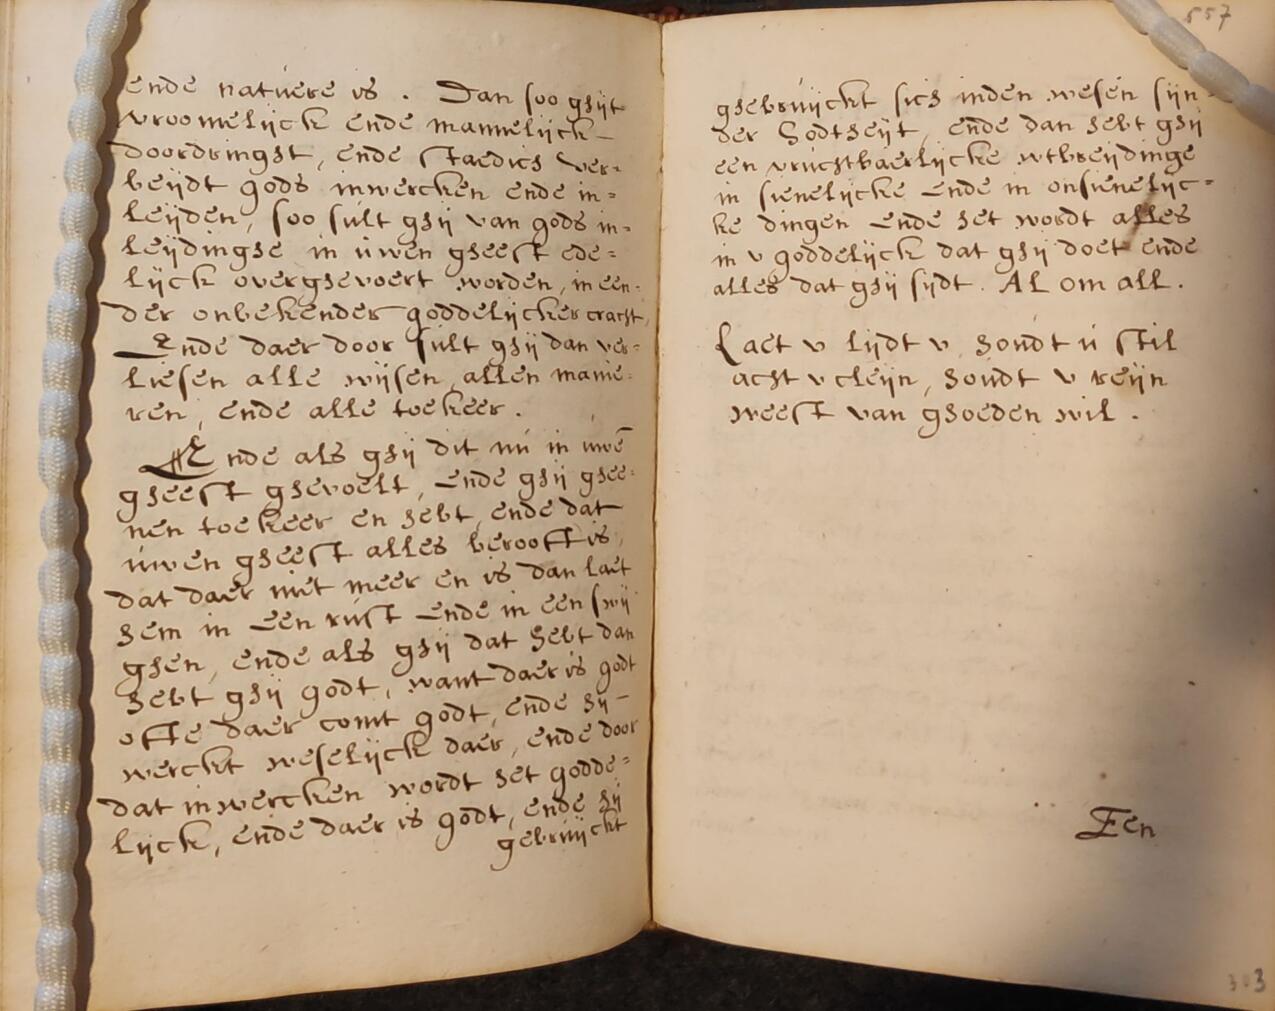 ende natuere is. Dan soo ghijt
vroomelijck ende mannelijck-
doordringht, ende staedich ver=
beijdt gods inwercken ende in=
leijden, soo sult ghij van gods in=
leijdinghe in uwen gheest ede=
lijck overghevoert worden, in een=
der onbekender goddelijcker cracht,
Ende daer door sult ghij dan ver=
liesen alle wijsen, allen manie=
ren, ende alle toekeer.
Ende als ghij dit nu in uwē
gheest ghevoelt, ende ghij ghee=
nen toekeer en hebt, ende dat
uwen gheest alles berooft is,
dat daer niet meer en is dan laet
hem in een rust ende in een swij
ghen, ende als ghij dat hebt dan
hebt ghij godt, want daer is godt
ofte daer comt godt, ende hij-
werckt weselijck daer, ende door
dat inwercken wordt het godde=
lijck, ende daer is godt, ende hij
gebruijckt
557
ghebruijckt sich inden wesen sijn=
der Godtheijt, ende dan hebt ghij
een vruchtbaerlijcke wtbreijdinge
in sienelijcke ende in onsienelijc=
ke dingen ende het wordt alles
in v goddelijck dat ghij doet ende
alles dat ghij sijdt. Al om all.
Laet v lijdt v, houdt ú stil
acht v cleijn, houdt v reijn
weest van ghoeden wil.
Een
303